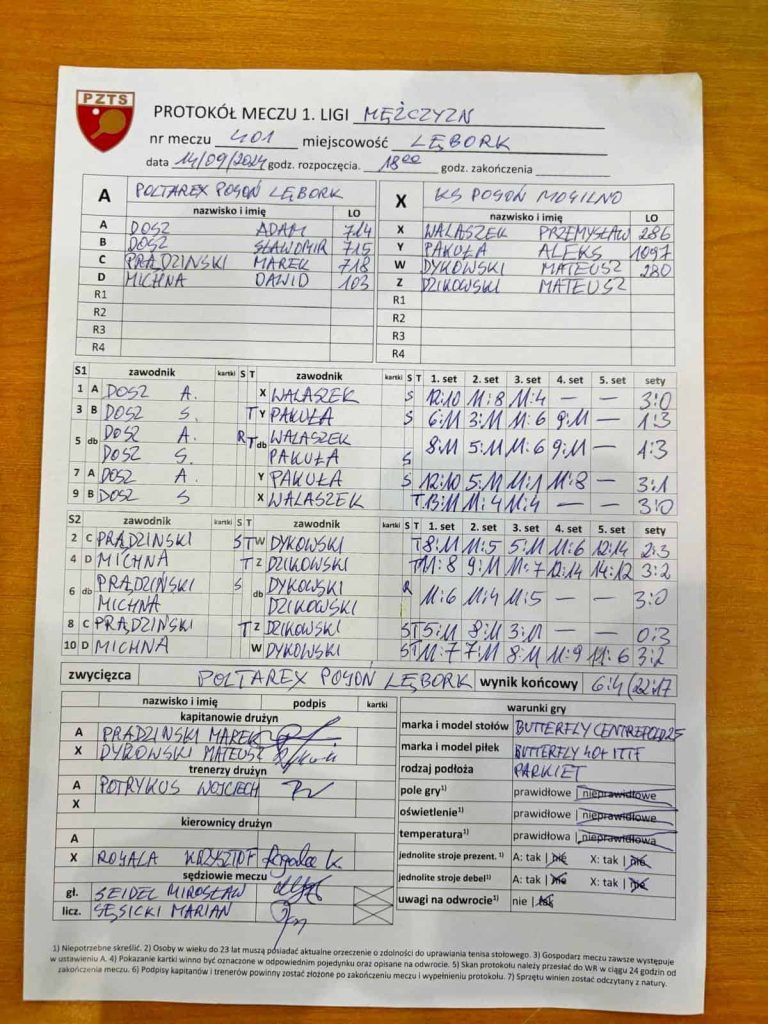 PZTS
PROTOKÓŁ MECZU 1. LIGI MĘŻCZYZN
nr meczu 401 miejscowość LĘBORK
data 14/09/2024 godz. rozpoczęcia. 18 00 godz. zakończenia
A POLTAREX POGOŃ LĘBORK X KS POGOŃ MOGILNO
nazwisko i imię LO nazwisko i imię LO
A DOSZ ADAM 714 X WALASZEK PRZEMYSŁAW 286
B DOSZ SŁAWOMIR 715 Y PAKUŁA ALEKS 1097
C PRĄDZINSKI MAREK 718 W DYKOWSKI MATEUSZ 280
D MICHNA DAWID 103 Z DZIKOWSKI MATEUSZ
R1 R1
R2 R2
R3 R3
R4 R4
S1 zawodnik kartki S T zawodnik kartki S T 1. set 2. set 3. set 4. set 5. set sety
1 A DOSZ A. X WALASZEK S 12:10 11:8 11:4 — — 3:0
3 B DOSZ S. T Y PAKUŁA S 6:11 3:11 11:6 9:11 — 1:3
5 db DOSZ A. R T db WALASZEK 8:11 5:11 11:6 9:11 — 1:3
DOSZ S. PAKUŁA S
7 A DOSZ A. Y PAKUŁA S 12:10 5:11 11:1 11:8 — 3:1
9 B DOSZ S X WALASZEK T 13:11 11:4 11:4 — — 3:0
S2 zawodnik kartki S T zawodnik kartki S T 1. set 2. set 3. set 4. set 5. set sety
2 C PRĄDZINSKI S T W DYKOWSKI T 8:11 11:5 5:11 11:6 12:14 2:3
4 D MICHNA T Z DZIKOWSKI T 11:8 9:11 11:7 12:14 14:12 3:2
6 db PRĄDZINSKI S db DYKOWSKI R 11:6 11:4 11:5 — — 3:0
MICHNA DZIKOWSKI
8 C PRĄDZINSKI T Z DZIKOWSKI S T 5:11 8:11 3:11 — — 0:3
10 D MICHNA W DYKOWSKI S T 11:7 7:11 8:11 11:9 11:6 3:2
zwycięzca POLTAREX POGOŃ LĘBORK wynik końcowy 6:4 (22:17
nazwisko i imię podpis kartki warunki gry
kapitanowie drużyn
A PRĄDZINSKI MAREK
X DYKOWSKI MATEUSZ
marka i model stołów BUTTERFLY CENTREFOLD 25
marka i model piłek BUTTERFLY 40+ ITTF
trenerzy drużyn
rodzaj podłoża PARKIET
A POTRYKUS WOJCIECH
X
pole gry1) prawidłowe | nieprawidłowe
oświetlenie1) prawidłowe | nieprawidłowe
kierownicy drużyn
temperatura1) prawidłowa | nieprawidłowa
A
X ROGALA KRZYSZTOF Rogala K.
jednolite stroje prezent. 1) A: tak | nie X: tak | nie
sędziowie meczu
jednolite stroje debel1) A: tak | nie X: tak | nie
gł. SEIDEL MIROSŁAW
uwagi na odwrocie1) nie | tak
licz. SĘSICKI MARIAN
1) Niepotrzebne skreślić. 2) Osoby w wieku do 23 lat muszą posiadać aktualne orzeczenie o zdolności do uprawiania tenisa stołowego. 3) Gospodarz meczu zawsze występuje
w ustawieniu A. 4) Pokazanie kartki winno być oznaczone w odpowiednim pojedynku oraz opisane na odwrocie. 5) Skan protokołu należy przesłać do WR w ciągu 24 godzin od
zakończenia meczu. 6) Podpisy kapitanów i trenerów powinny zostać złożone po zakończeniu meczu i wypełnieniu protokołu. 7) Sprzętu winien zostać odczytany z natury.